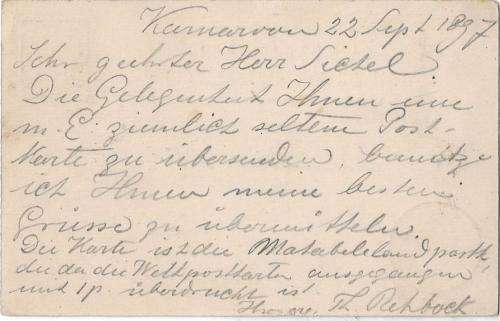 Karnarvon 22 Sept 1897.
Sehr geehrter Herr Sichel
Die Gelegenheit Ihnen eine
m. E. ziemlich seltene Post-
Karte zu übersenden, benutze
ich Ihnen meine besten
Grüsse zu übermitteln.
Die Karte ist die Matabeleland postk.
die da die Weltpostkarten ausgegangen
mit 1 p. überdruckt ist
Th. Rehbock